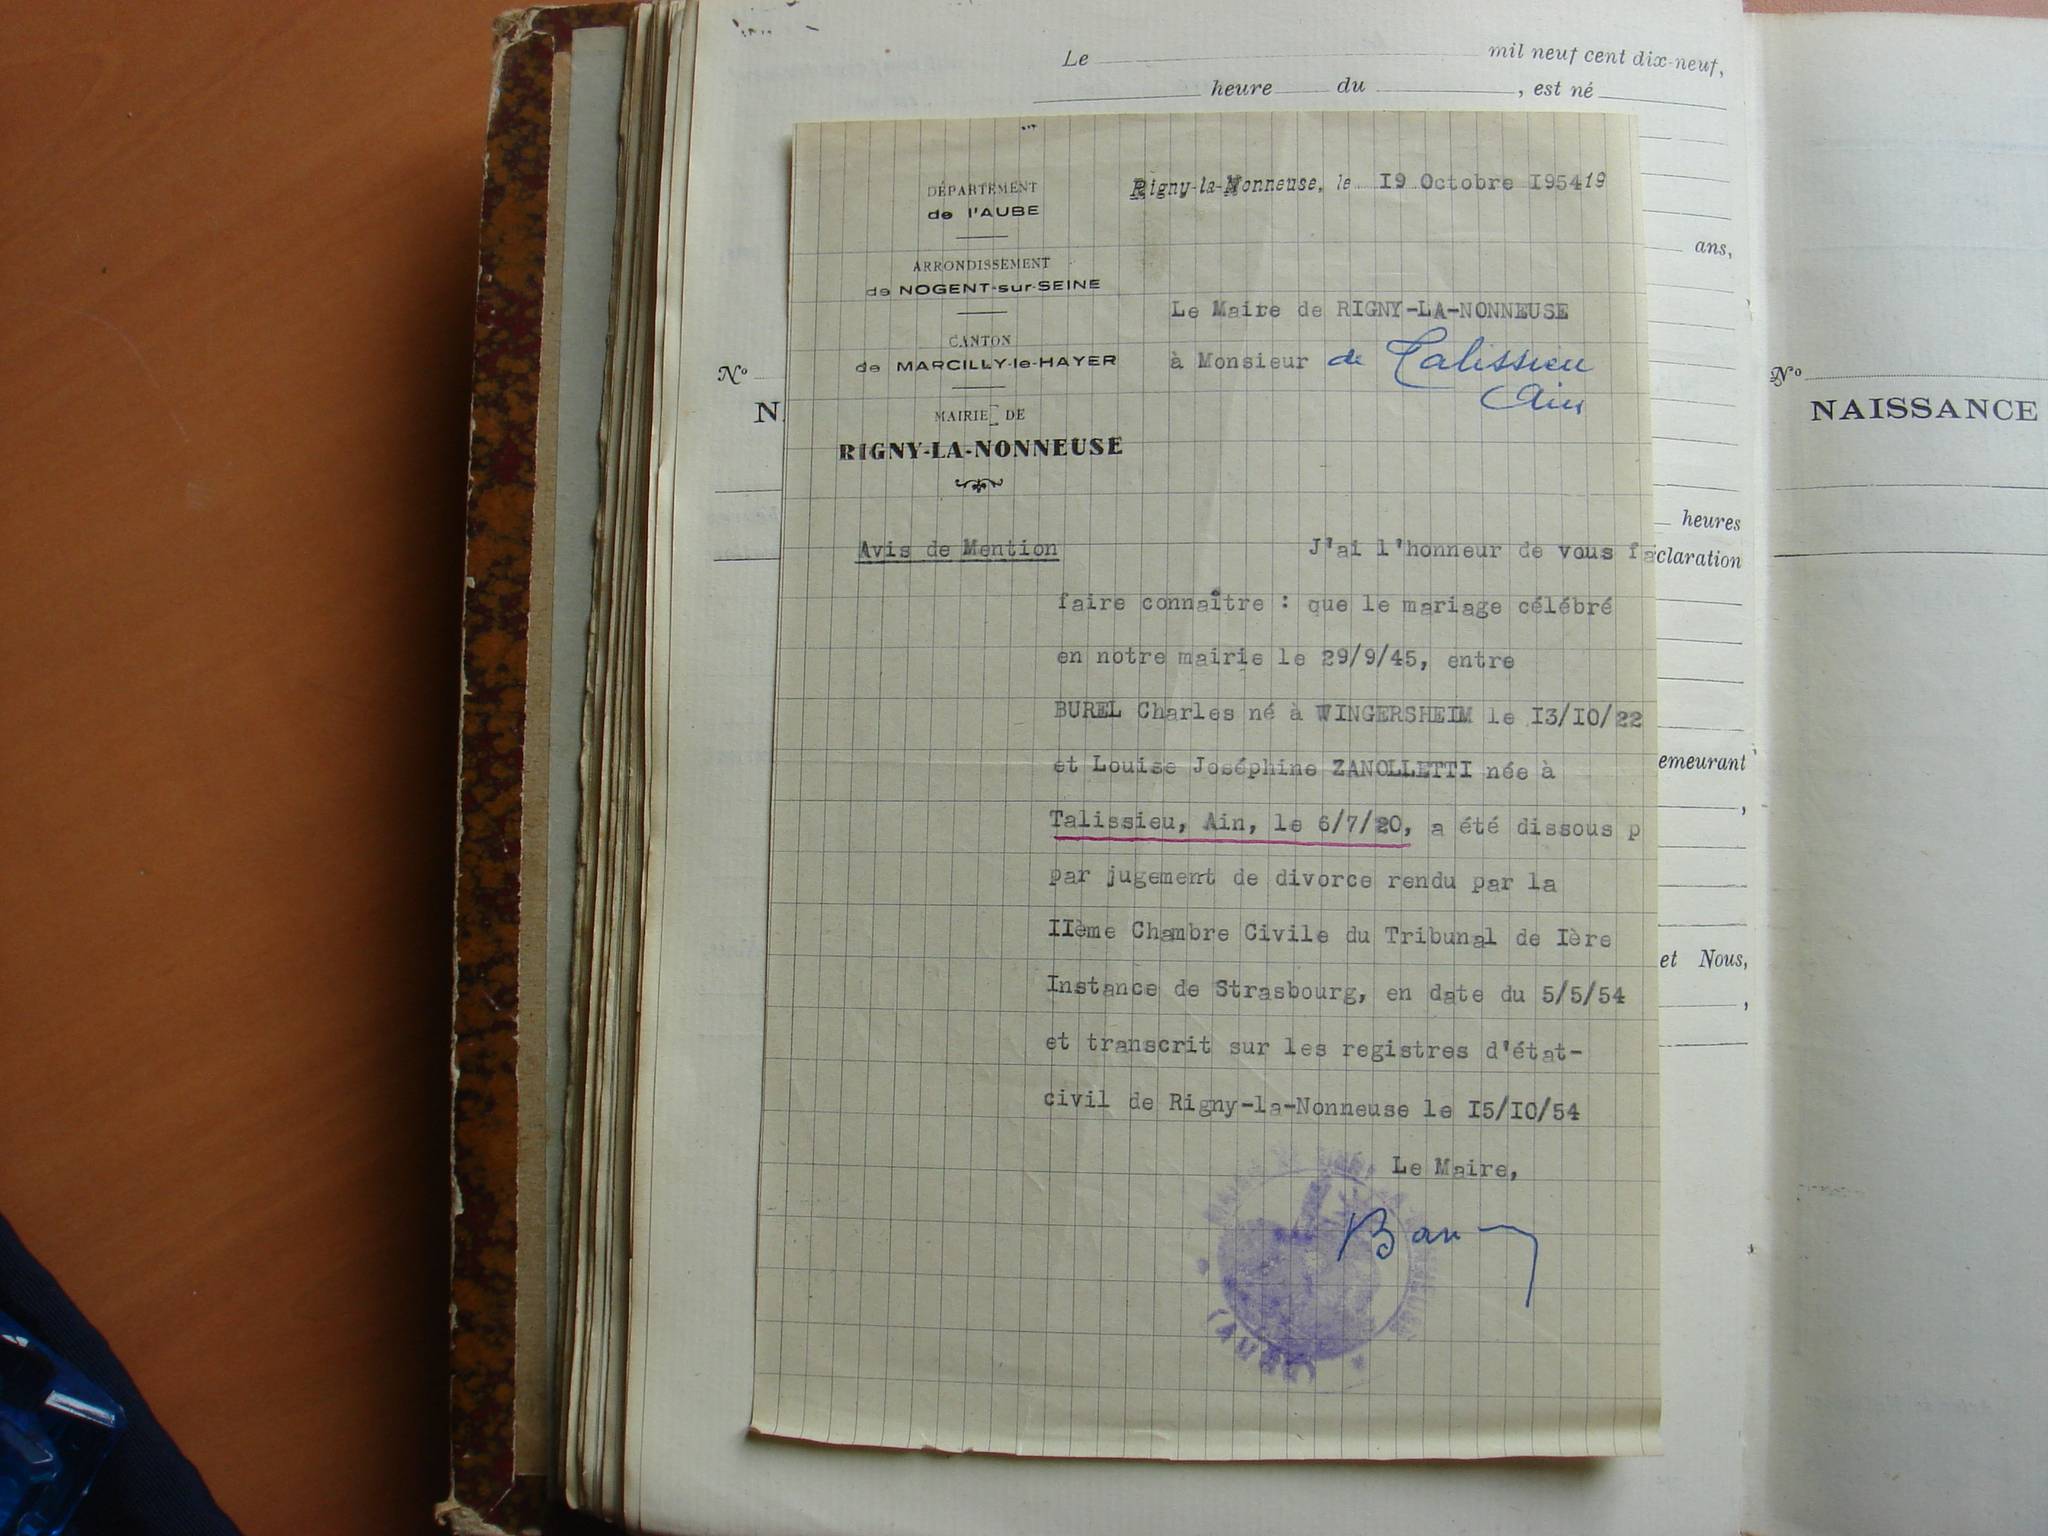 Le mil neuf cent dix-neuf,
heure du , est né
DÉPARTEMENT
de l'AUBE
ARRONDISSEMENT
de NOGENT-sur-SEINE
CANTON
de MARCILLY-le-HAYER
MAIRIE DE
RIGNY-LA-NONNEUSE
Rigny-la-Nonneuse, le 19 Octobre 195419
Le Maire de RIGNY-LA-NONNEUSE
à Monsieur de Talissieu
Ain
Avis de Mention
J'ai l'honneur de vous fa
faire connaître : que le mariage célébré
en notre mairie le 29/9/45, entre
BUREL Charles né à WINGERSHEIM le I3/I0/22
et Louise Joséphine ZANOLLETTI née à
Talissieu, Ain, le 6/7/20, a été dissous p
par jugement de divorce rendu par la
IIème Chambre Civile du Tribunal de Ière
Instance de Strasbourg, en date du 5/5/54
et transcrit sur les registres d'état-
civil de Rigny-la-Nonneuse le I5/I0/54
Le Maire,
(AUBE)
ans,
heures
claration
emeurant
,
et Nous,
,
Nº
N
Nº
NAISSANCE